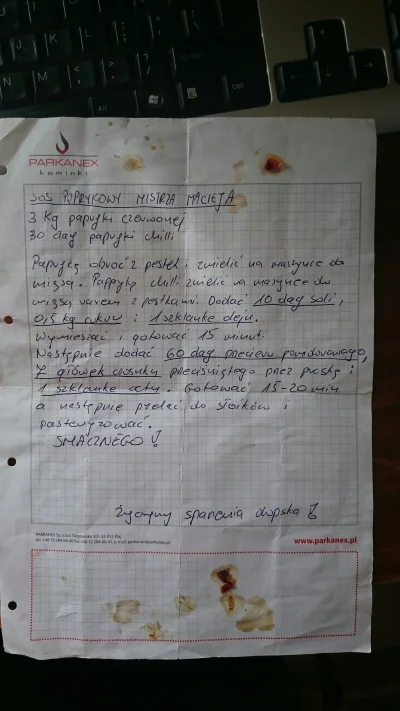 PARKANEX
kominki
SOS PAPRYKOWY MISTRZA MACIEJA
3 Kg papryki czerwonej
30 dag papryki chilli
Paprykę obrać z pestek i zmielić na maszynce do
mięsa. Paprykę chilli zmielić na maszynce do
mięsa razem z pestkami. Dodać 10 dag soli,
0,5 kg cukru i 1 szklankę oleju.
Wymieszać i gotować 15 minut.
Następnie dodać 60 dag przecieru pomidorowego,
7 główek czosnku przeciśniętego przez praskę i
1 szklankę octu. Gotować 15-20 min
a następnie przelać do słoików i
pasteryzować.
SMACZNEGO!
Życzymy sparzenia dupska!
www.parkanex.pl